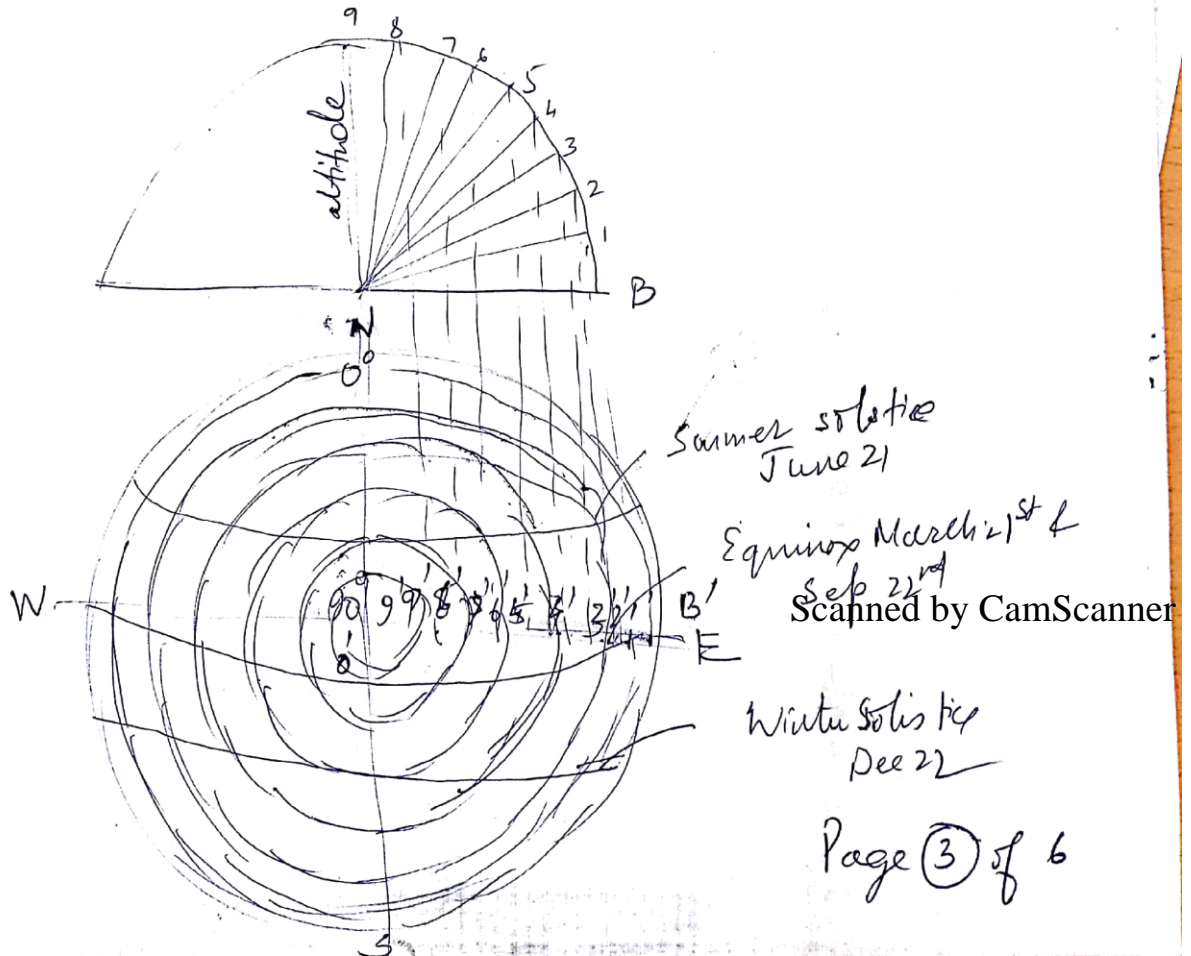 9
8
7
6
5
4
3
2
1
altitude
B
N
0°
Summer solstice
June 21
Equinox March 21st &
Sep 22nd
W
90 9' 9' 8' 7' 6' 5' 4' 3' 2' 1' B'
0'
E
Scanned by CamScanner
Winter Solistice
Dec 22
Page 3 of 6
S